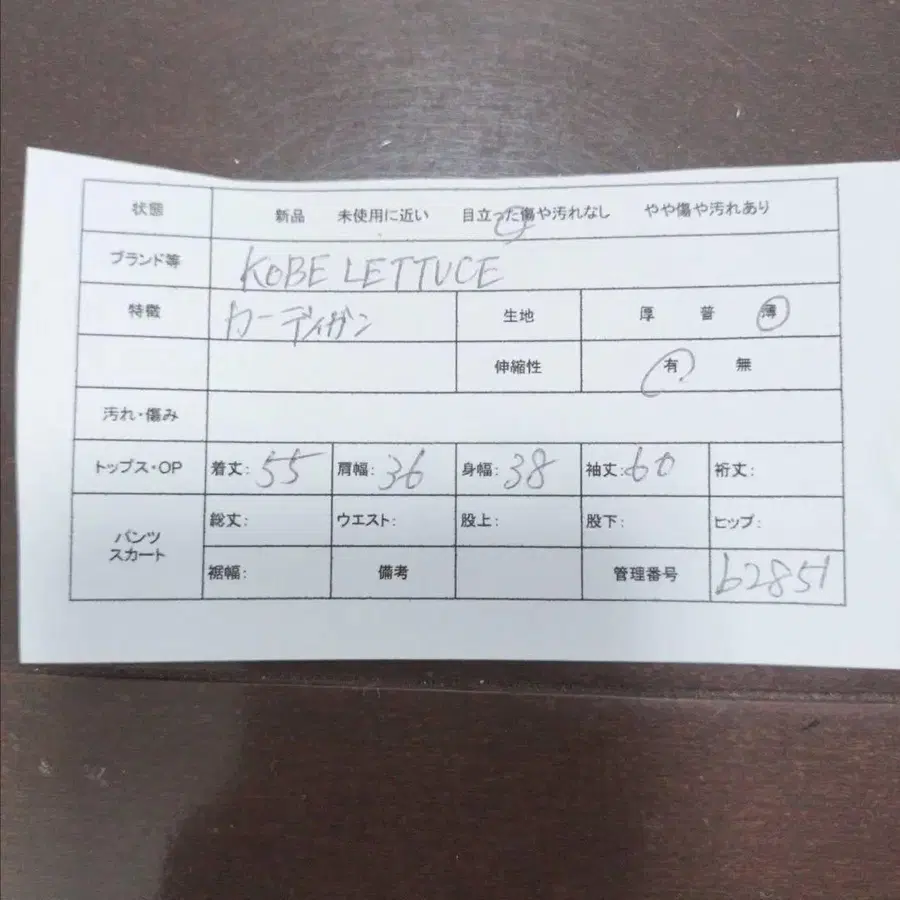 状態 新品 未使用に近い 目立った傷や汚れなし やや傷や汚れあり
ブランド等 KOBE LETTUCE
特徴 カーディガン 生地 厚 普 薄
伸縮性 有 無
汚れ・傷み
トップス・OP 着丈: 55 肩幅: 36 身幅: 38 袖丈: 60 裄丈:
パンツ スカート 総丈: ウエスト: 股上: 股下: ヒップ:
裾幅: 備考 管理番号 b2851